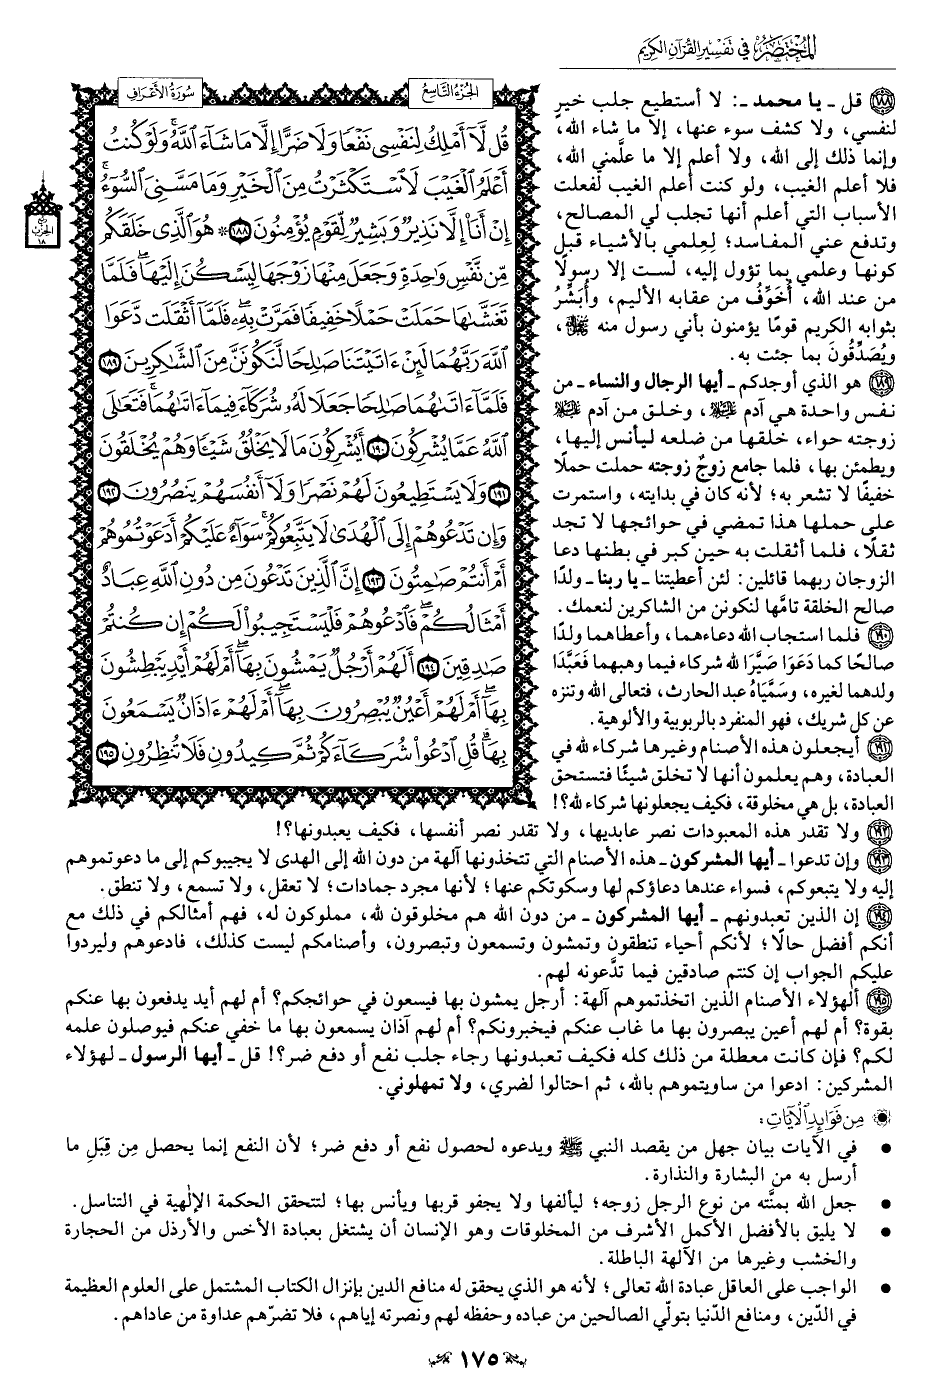 المختصر في تفسير القرآن الكريم
الجزء التاسع
سورة الأعراف
ربع الحزب ١٨
قُل لَّآ أَمۡلِكُ لِنَفۡسِي نَفۡعٗا وَلَا ضَرًّا إِلَّا مَا شَآءَ ٱللَّهُۚ وَلَوۡ كُنتُ
أَعۡلَمُ ٱلۡغَيۡبَ لَٱسۡتَكۡثَرۡتُ مِنَ ٱلۡخَيۡرِ وَمَا مَسَّنِيَ ٱلسُّوٓءُۚ
إِنۡ أَنَا۠ إِلَّا نَذِيرٞ وَبَشِيرٞ لِّقَوۡمٖ يُؤۡمِنُونَ ١٨٨ ۞ هُوَ ٱلَّذِي خَلَقَكُم
مِّن نَّفۡسٖ وَٰحِدَةٖ وَجَعَلَ مِنۡهَا زَوۡجَهَا لِيَسۡكُنَ إِلَيۡهَاۖ فَلَمَّا
تَغَشَّىٰهَا حَمَلَتۡ حَمۡلًا خَفِيفٗا فَمَرَّتۡ بِهِۦۖ فَلَمَّآ أَثۡقَلَت دَّعَوَا
ٱللَّهَ رَبَّهُمَا لَئِنۡ ءَاتَيۡتَنَا صَٰلِحٗا لَّنَكُونَنَّ مِنَ ٱلشَّٰكِرِينَ ١٨٩
فَلَمَّآ ءَاتَىٰهُمَا صَٰلِحٗا جَعَلَا لَهُۥ شُرَكَآءَ فِيمَآ ءَاتَىٰهُمَاۚ فَتَعَٰلَى
ٱللَّهُ عَمَّا يُشۡرِكُونَ ١٩٠ أَيُشۡرِكُونَ مَا لَا يَخۡلُقُ شَيۡـٔٗا وَهُمۡ يُخۡلَقُونَ
١٩١ وَلَا يَسۡتَطِيعُونَ لَهُمۡ نَصۡرٗا وَلَآ أَنفُسَهُمۡ يَنصُرُونَ ١٩٢
وَإِن تَدۡعُوهُمۡ إِلَى ٱلۡهُدَىٰ لَا يَتَّبِعُوكُمۡۚ سَوَآءٌ عَلَيۡكُمۡ أَدَعَوۡتُمُوهُمۡ
أَمۡ أَنتُمۡ صَٰمِتُونَ ١٩٣ إِنَّ ٱلَّذِينَ تَدۡعُونَ مِن دُونِ ٱللَّهِ عِبَادٌ
أَمۡثَالُكُمۡۖ فَٱدۡعُوهُمۡ فَلۡيَسۡتَجِيبُواْ لَكُمۡ إِن كُنتُمۡ
صَٰدِقِينَ ١٩٤ أَلَهُمۡ أَرۡجُلٞ يَمۡشُونَ بِهَآۖ أَمۡ لَهُمۡ أَيۡدٖ يَبۡطِشُونَ
بِهَآۖ أَمۡ لَهُمۡ أَعۡيُنٞ يُبۡصِرُونَ بِهَآۖ أَمۡ لَهُمۡ ءَاذَانٞ يَسۡمَعُونَ
بِهَاۗ قُلِ ٱدۡعُواْ شُرَكَآءَكُمۡ ثُمَّ كِيدُونِ فَلَا تُنظِرُونِ ١٩٥
١٨٨ قل ـ يا محمد ـ: لا أستطيع جلب خيرٍ
لنفسي، ولا كشف سوء عنها، إلا ما شاء الله،
وإنما ذلك إلى الله، ولا أعلم إلا ما علَّمني الله،
فلا أعلم الغيب، ولو كنت أعلم الغيب لفعلت
الأسباب التي أعلم أنها تجلب لي المصالح،
وتدفع عني المفاسد؛ لِعِلمي بالأشياء قبل
كونها وعلمي بما تؤول إليه، لست إلا رسولًا
من عند الله، أُخَوِّفُ من عقابه الأليم، وأُبَشِّرُ
بثوابه الكريم قومًا يؤمنون بأني رسول منه ﷺ،
ويُصَدِّقُونَ بما جئت به.
١٨٩ هو الذي أوجدكم ـ أيها الرجال والنساء ـ من
نفس واحدة هي آدم ﷺ، وخلق من آدم ﷺ
زوجته حواء، خلقها من ضلعه ليأنس إليها،
ويطمئن بها، فلما جامع زوجٌ زوجته حملت حملًا
خفيفًا لا تشعر به؛ لأنه كان في بدايته، واستمرت
على حملها هذا تمضي في حوائجها لا تجد
ثقلًا، فلما أثقلت به حين كبر في بطنها دعا
الزوجان ربهما قائلين: لئن أعطيتنا ـ يا ربنا ـ ولدًا
صالح الخلقة تامَّها لنكونن من الشاكرين لنعمك.
١٩٠ فلما استجاب الله دعاءهما، وأعطاهما ولدًا
صالحًا كما دَعَوَا صَيَّرَا لله شركاء فيما وهبهما فَعَبَّدَا
ولدهما لغيره، وسَمَّيَاهُ عبد الحارث، فتعالى الله وتنزه
عن كل شريك، فهو المنفرد بالربوبية والألوهية.
١٩١ أيجعلون هذه الأصنام وغيرها شركاء لله في
العبادة، وهم يعلمون أنها لا تخلق شيئًا فتستحق
العبادة، بل هي مخلوقة، فكيف يجعلونها شركاء لله؟!
١٩٢ ولا تقدر هذه المعبودات نصر عابديها، ولا تقدر نصر أنفسها، فكيف يعبدونها؟!
١٩٣ وإن تدعوا ـ أيها المشركون ـ هذه الأصنام التي تتخذونها آلهة من دون الله إلى الهدى لا يجيبوكم إلى ما دعوتموهم
إليه ولا يتبعوكم، فسواء عندها دعاؤكم لها وسكوتكم عنها؛ لأنها مجرد جمادات؛ لا تعقل، ولا تسمع، ولا تنطق.
١٩٤ إن الذين تعبدونهم ـ أيها المشركون ـ من دون الله هم مخلوقون لله، مملوكون له، فهم أمثالكم في ذلك مع
أنكم أفضل حالًا؛ لأنكم أحياء تنطقون وتمشون وتسمعون وتبصرون، وأصنامكم ليست كذلك، فادعوهم وليردوا
عليكم الجواب إن كنتم صادقين فيما تدَّعونه لهم.
١٩٥ ألهؤلاء الأصنام الذين اتخذتموهم آلهة: أرجل يمشون بها فيسعون في حوائجكم؟ أم لهم أيد يدفعون بها عنكم
بقوة؟ أم لهم أعين يبصرون بها ما غاب عنكم فيخبرونكم؟ أم لهم آذان يسمعون بها ما خفي عنكم فيوصلون علمه
لكم؟ فإن كانت معطلة من ذلك كله فكيف تعبدونها رجاء جلب نفع أو دفع ضر؟! قل ـ أيها الرسول ـ لهؤلاء
المشركين: ادعوا من ساويتموهم بالله، ثم احتالوا لضري، ولا تمهلوني.
من فوائد الآيات:
• في الآيات بيان جهل من يقصد النبي ﷺ ويدعوه لحصول نفع أو دفع ضر؛ لأن النفع إنما يحصل مِن قِبَلِ ما
أرسل به من البشارة والنذارة.
• جعل الله بمنَّته من نوع الرجل زوجه؛ ليألفها ولا يجفو قربها ويأنس بها؛ لتتحقق الحكمة الإلٰهية في التناسل.
• لا يليق بالأفضل الأكمل الأشرف من المخلوقات وهو الإنسان أن يشتغل بعبادة الأخس والأرذل من الحجارة
والخشب وغيرها من الآلهة الباطلة.
• الواجب على العاقل عبادة الله تعالى؛ لأنه هو الذي يحقق له منافع الدين بإنزال الكتاب المشتمل على العلوم العظيمة
في الدِّين، ومنافع الدّنيا بتولّي الصالحين من عباده وحفظه لهم ونصرته إياهم، فلا تضرّهم عداوة من عاداهم.
١٧٥